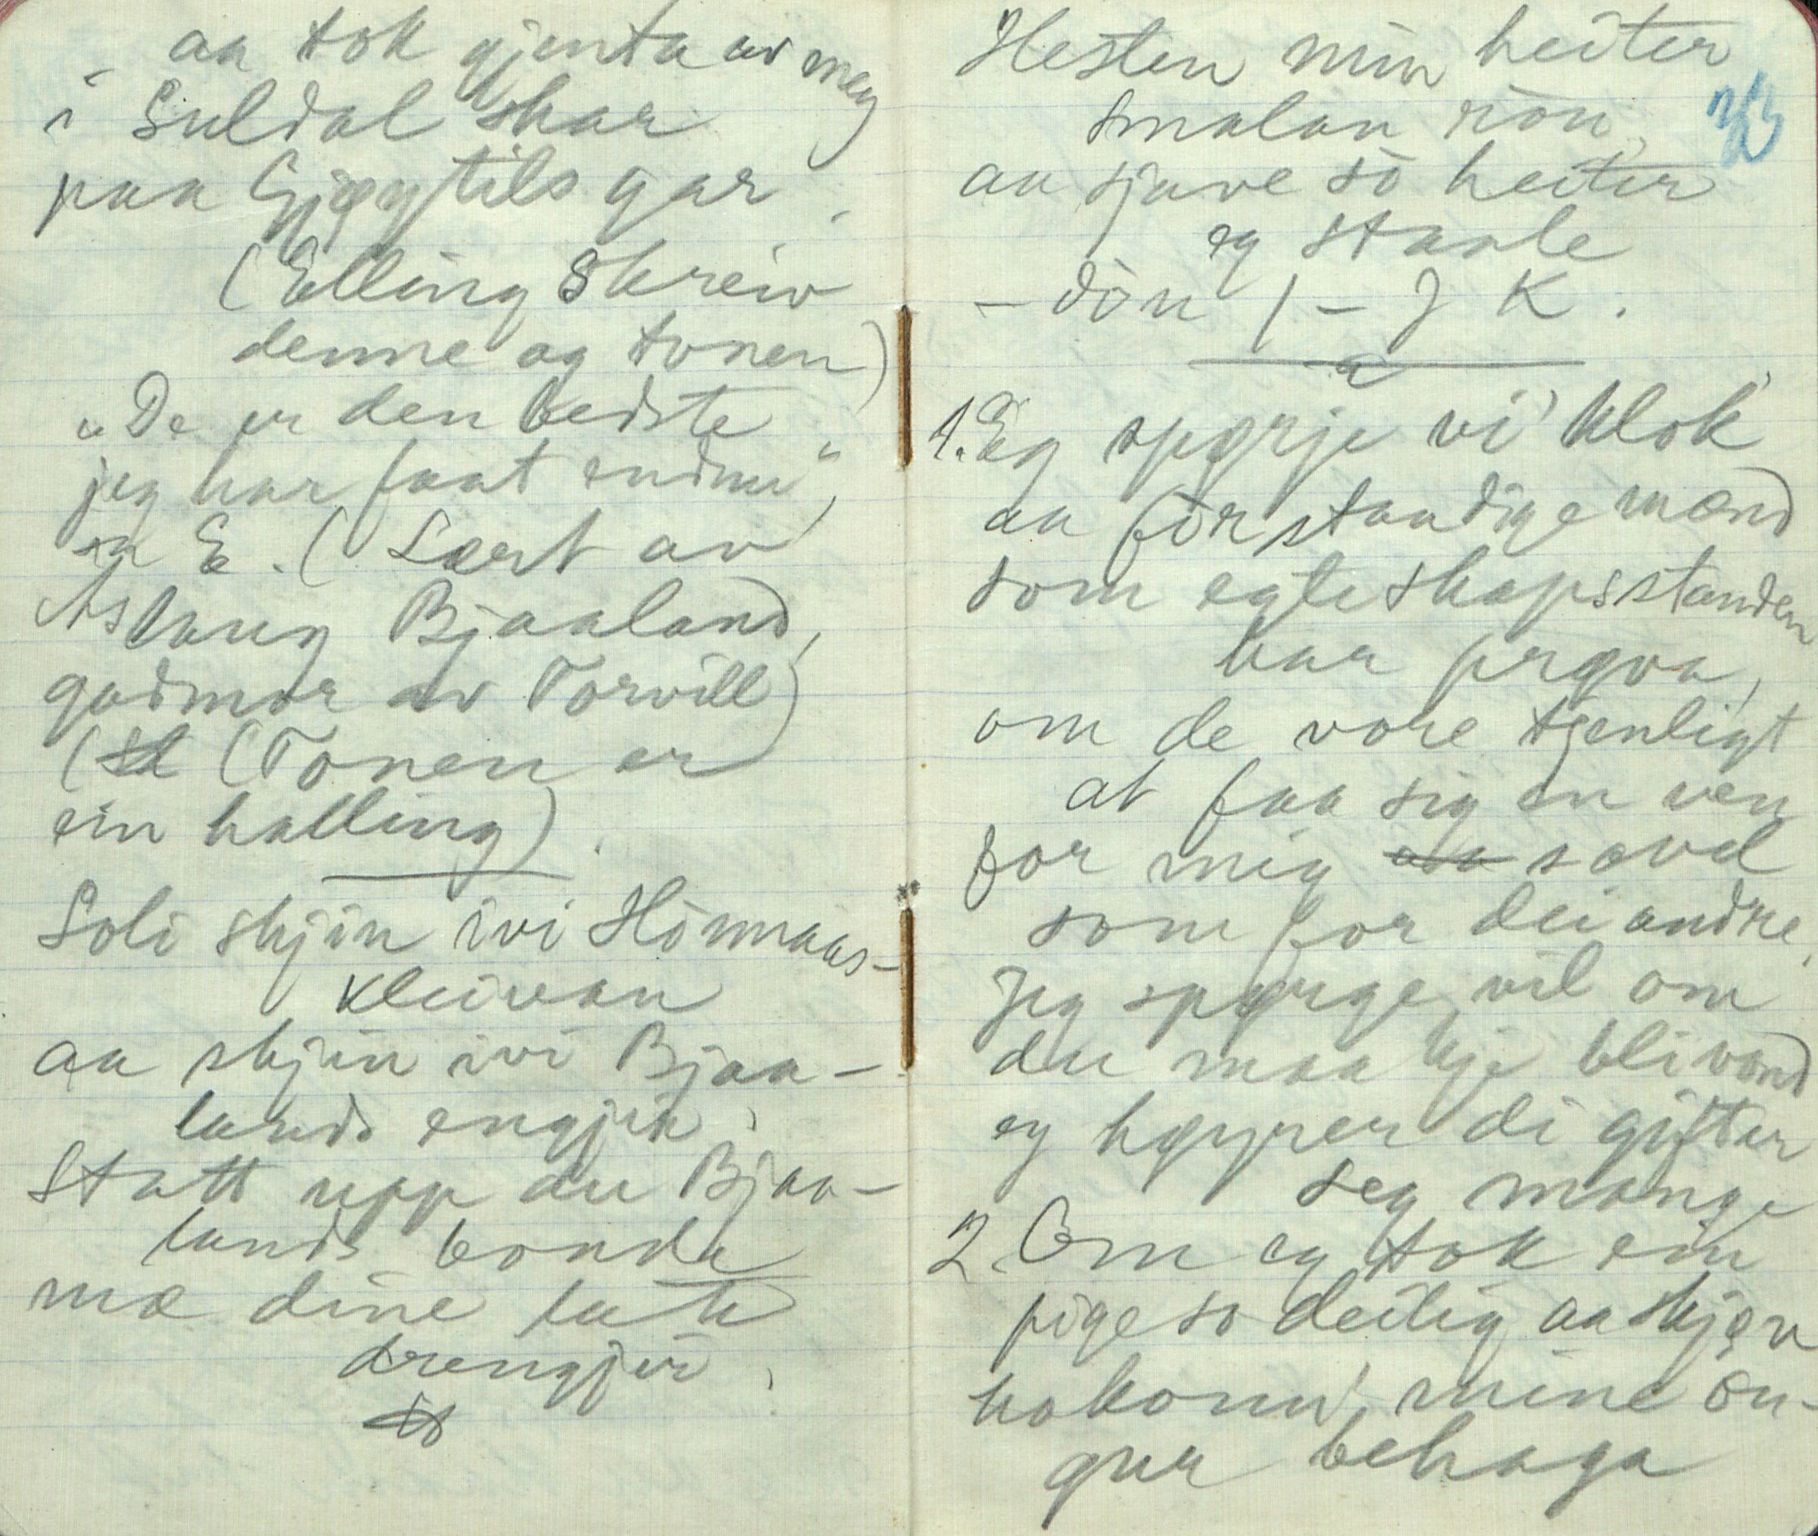 aa tok gjenta av meg
i Suldal skar
paa Gjøytils gar.
(Elling Skreiv
denne og tonen)
„De er den bedste
jeg har faat endnu“,
sa E. (Lært av
Aslaug Bjaaland,
gudmor av Torvill)
(Tonen er
ein halling).
Soli skjin ivi Hómmaas-
kleivan
aa skjin ivi Bjaa-
lands engjir,
Statt upp du Bjaa-
lands bonde
mæ dine late
drengjir.
Hesten min heiter
Smalan rón,
33
aa sjave só heiter
eg Staale
- dón / - J K.
1. Eg spørje vi' klok'
aa fórstandige mænd
som egteskapsstanden
har prøva,
om de vore tjenligt
at faa sig en ven
for mig savel
som for dei andre,
Jeg spørge vil om
du maa kje bli vond
eg høyrer di gifter
seg mange
2. Om eg tok ein
pige so deilig aa skjøn
ho konni mine óu-
gur behaga